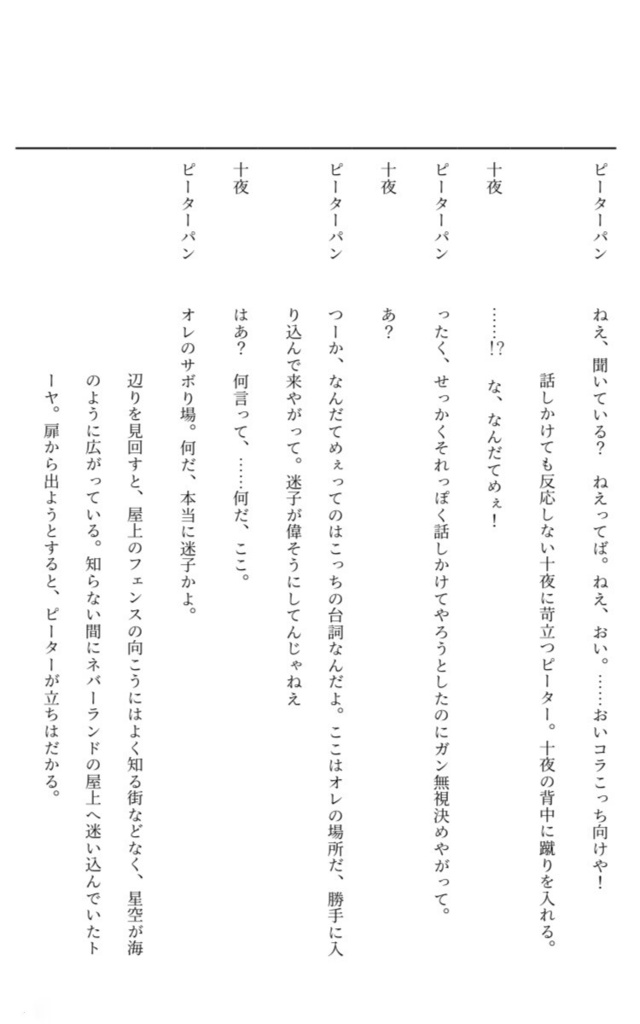 ピーターパン　ねえ、聞いている？　ねえってば。ねえ、おい。……おいコラこっち向けや！
話しかけても反応しない十夜に苛立つピーター。十夜の背中に蹴りを入れる。
十夜　……!?　な、なんだてめぇ！
ピーターパン　ったく、せっかくそれっぽく話しかけてやろうとしたのにガン無視決めやがって。
十夜　あ？
ピーターパン　つーか、なんだてめぇってのはこっちの台詞なんだよ。ここはオレの場所だ、勝手に入
り込んで来やがって。迷子が偉そうにしてんじゃねえ
十夜　はあ？　何言って、……何だ、ここ。
ピーターパン　オレのサボり場。何だ、本当に迷子かよ。
辺りを見回すと、屋上のフェンスの向こうにはよく知る街などなく、星空が海
のように広がっている。知らない間にネバーランドの屋上へ迷い込んでいたト
ーヤ。扉から出ようとすると、ピーターが立ちはだかる。